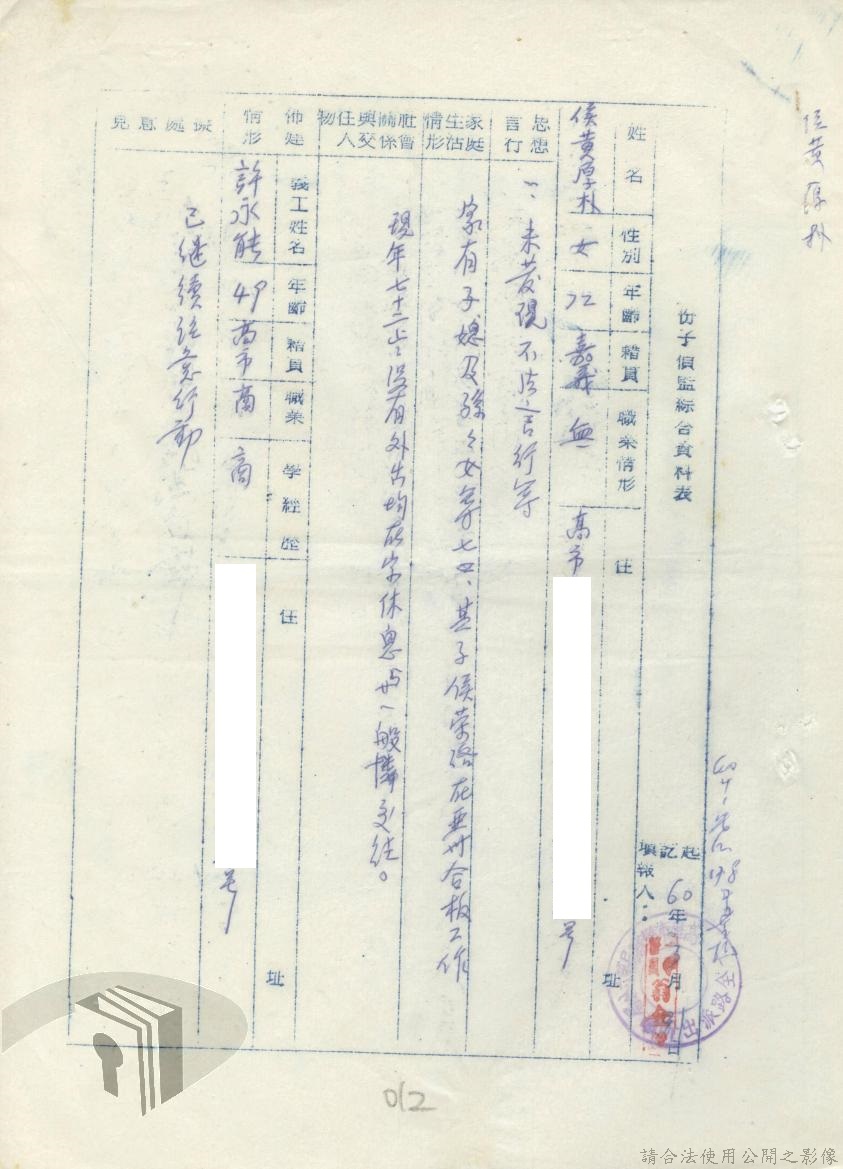 侯黃厚朴
份子偵監綜合資料表
起記 60年 月 日
填報人：
全路派出
姓名 性別 年齡 籍貫 職業情形 住 址
侯黃厚朴 女 72 嘉義 無 高市 号
思想言行
一、未發現不法之言行等
家庭生活情形
家有子媳及孫々女等七口、其子侯榮 在亞州合板工作
社會關係與交往人物
現年七十二歲 沒有外出均在家休息 与一般憐 交往。
佈建情形
義工姓名 年齡 籍貫 職業 學經歷 住 址
許永能 49 高市 商 商 号
擬處意見
已继續注意行動
012
請合法使用公開之影像